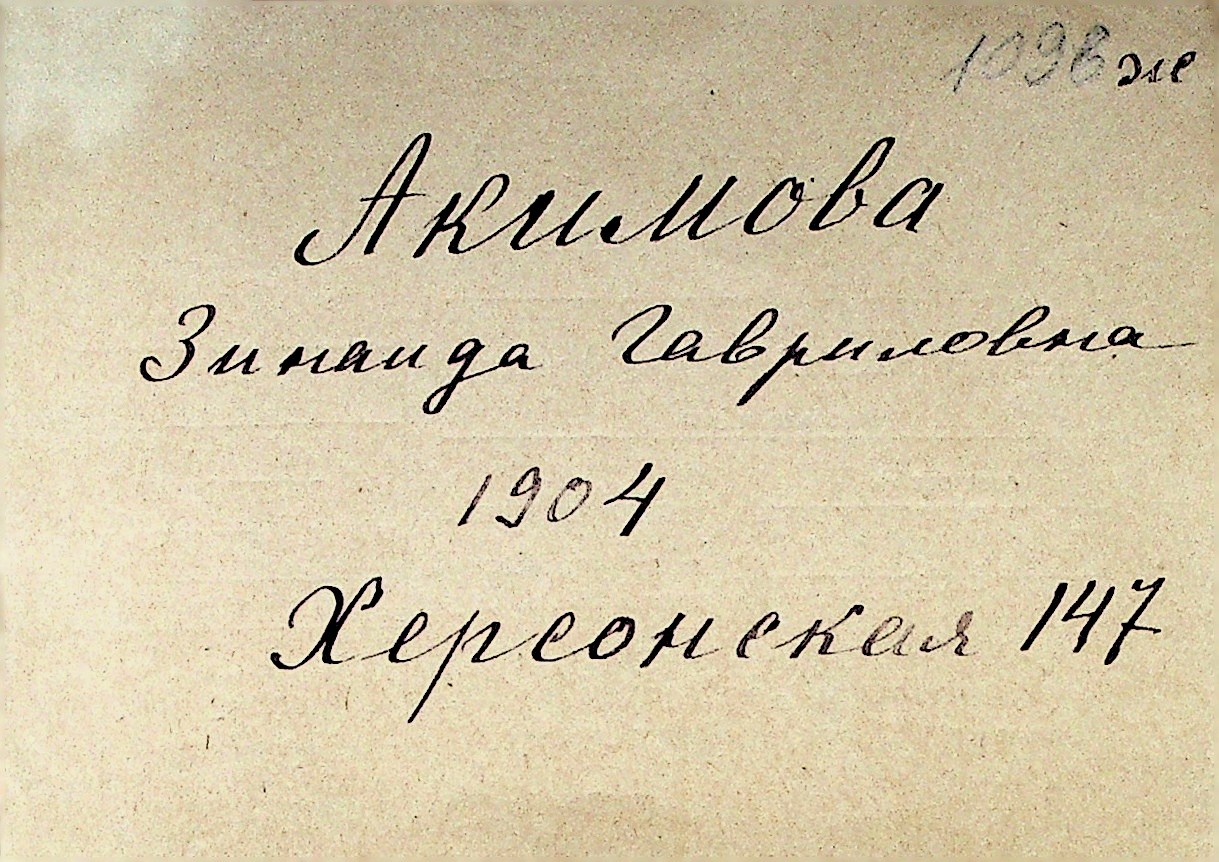 1098 ж
Акимова
Зинаида Гавриловна
1904
Херсонская 147